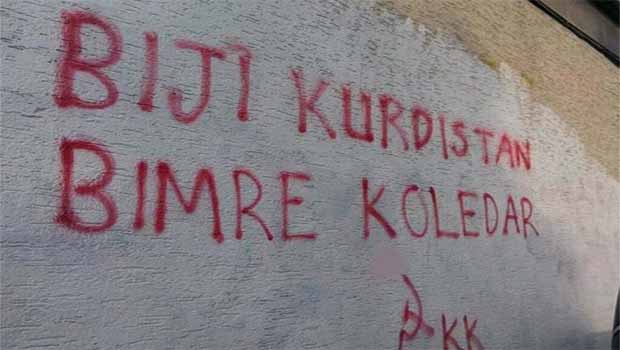 BIJÎ KURDISTAN
BIMRE KOLEDAR
KK